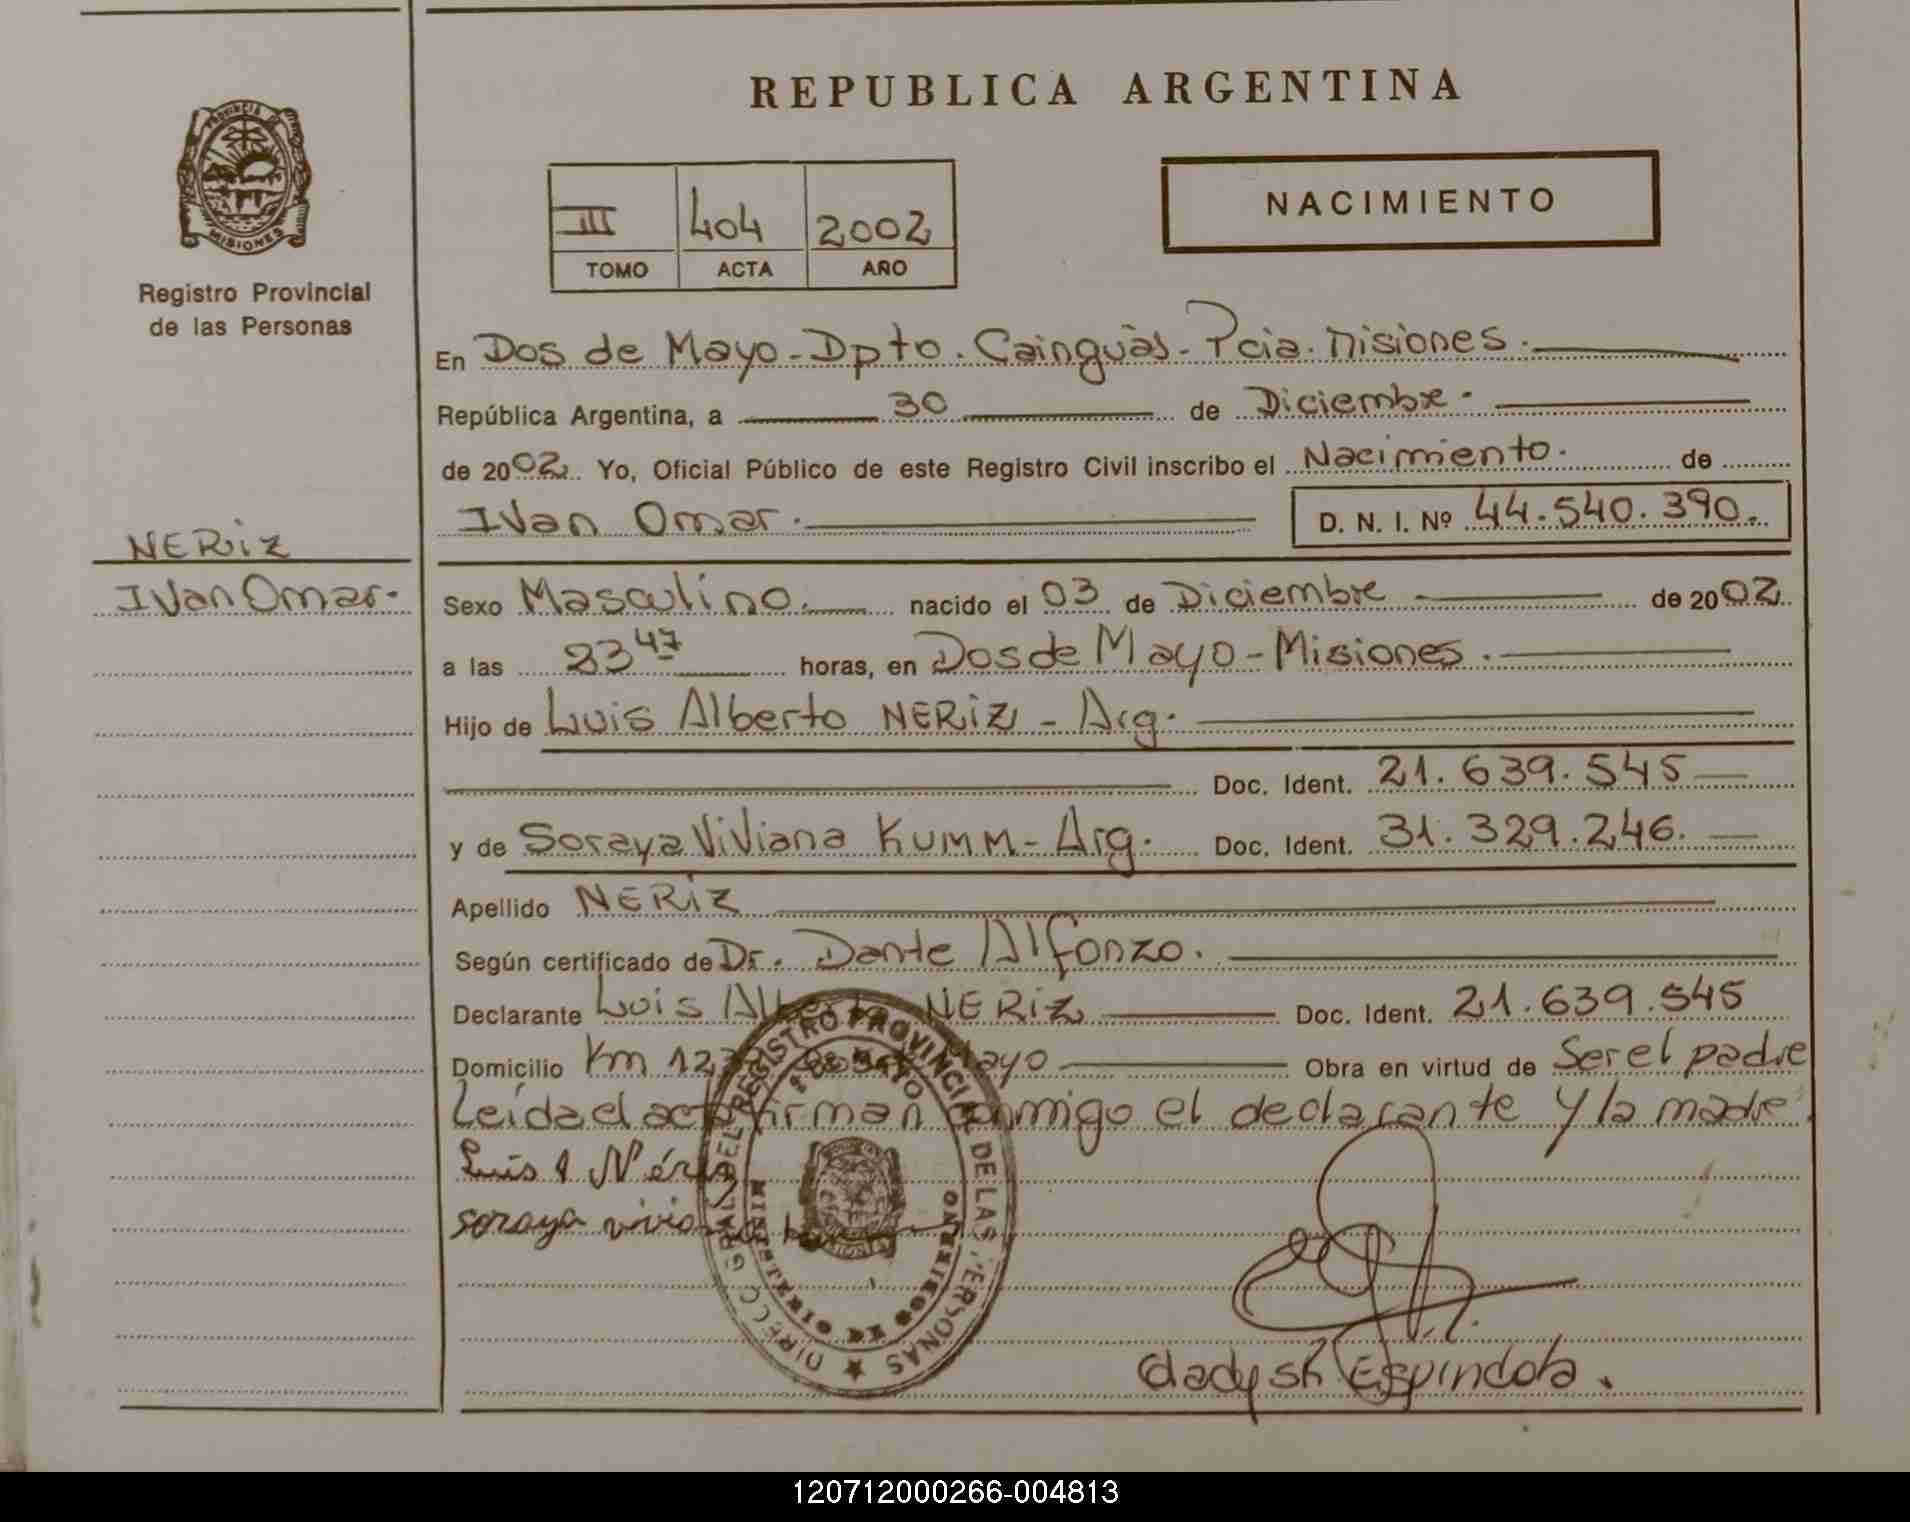 REPUBLICA ARGENTINA
PROVINCIA DE
MISIONES
Registro Provincial
de las Personas
NACIMIENTO
III 404 2002
TOMO ACTA AÑO
En Dos de Mayo - Dpto. Cainguàs - Pcia. Misiones.
República Argentina, a 30 de Diciembre.
de 2002. Yo, Oficial Público de este Registro Civil inscribo el Nacimiento. de
Ivan Omar. D. N. I. Nº 44.540.390.
NERIZ
Ivan Omar.
Sexo Masculino. nacido el 03 de Diciembre de 2002
a las 23 47 horas, en Dos de Mayo - Misiones.
Hijo de Luis Alberto NERIZ - Arg.
Doc. Ident. 21.639.545
y de Soraya Viviana KUMM - Arg. Doc. Ident. 31.329.246.
Apellido NERIZ
Según certificado de Dr. Dante Alfonzo.
Declarante Luis Alberto NERIZ Doc. Ident. 21.639.545
Domicilio Km Mayo Obra en virtud de Ser el padre
Leída el acta firman conmigo el declarante y la madre.
Luis A Nériz
soraya viviana
DIRECC GRAL DEL REGISTRO PROVINCIAL DE LAS PERSONAS
MINISTERIO DE GOBIERNO
Gladys H Espindola.
120712000266-004813